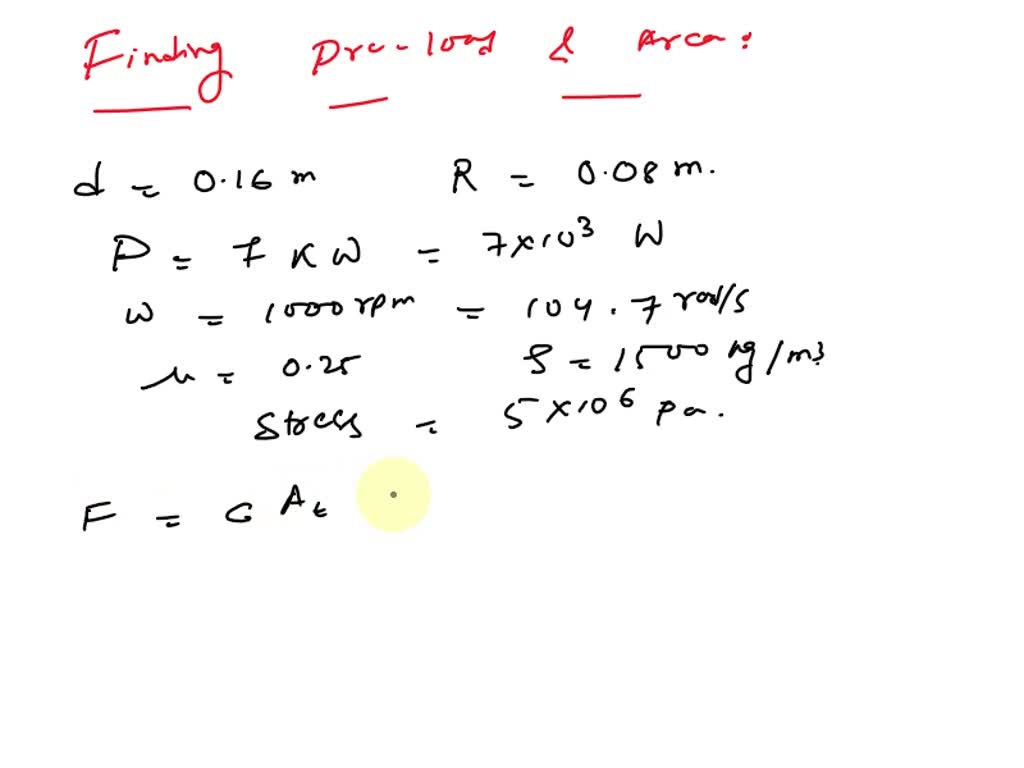 Finding Pre-load & Area:
d = 0.16 m R = 0.08 m.
P = 7 KW = 7×10³ W
ω = 1000 rpm = 104.7 rad/s
μ = 0.25 ρ = 1500 kg/m3
Stress = 5×10⁶ pa.
F = σ At